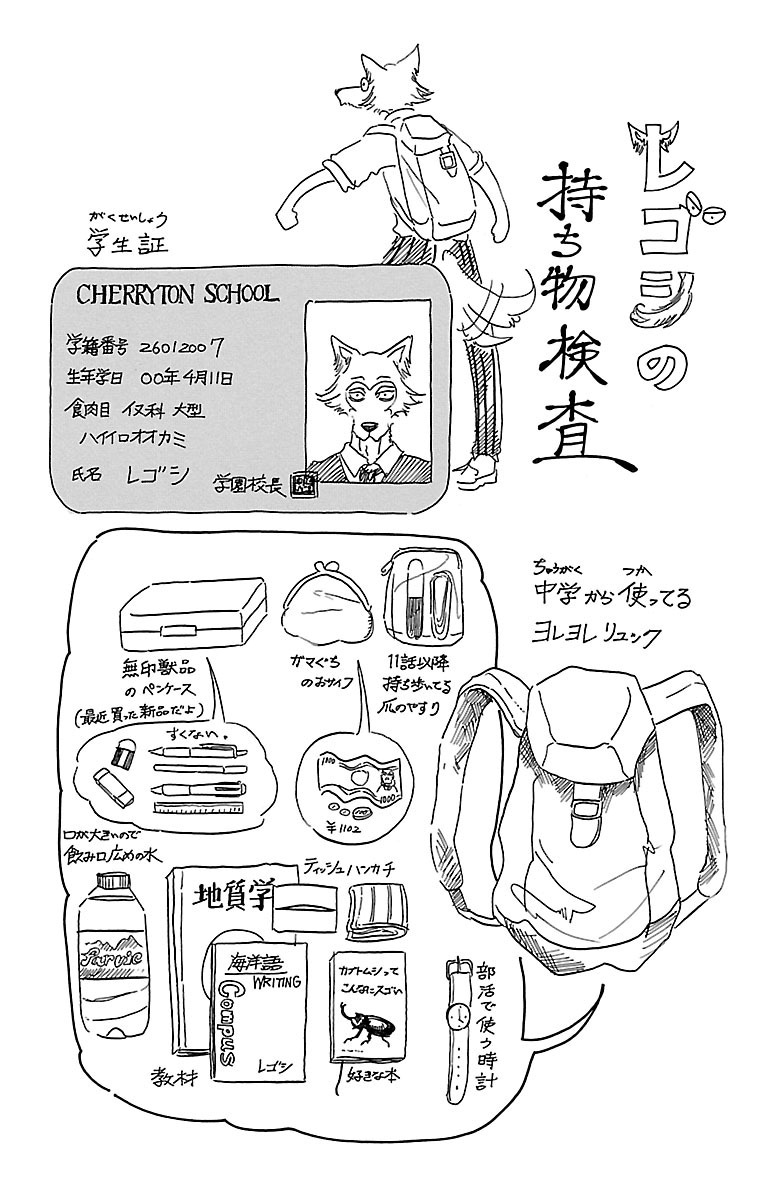 レゴシの
持ち物検査
がくせいしょう
学生証
CHERRYTON SCHOOL
学籍番号 26012007
生年学日 00年4月11日
食肉目 イヌ科 大型
ハイイロオオカミ
氏名 レゴシ
学園校長
ちゅうがく つか
中学から使ってる
ヨレヨレリュック
無印獣品
のペンケース
(最近買った新品だよ)
すくない。
ガマぐち
のおサイフ
1000
1000
¥1102
11話以降
持ち歩いてる
爪のやすり
口が大きいので
飲み口広めの水
Parvic
ティッシュハンカチ
地質学
海洋語
WRITING
Compus
レゴシ
教材
カブトムシって
こんなにスゴい
好きな本
部活で使う時計